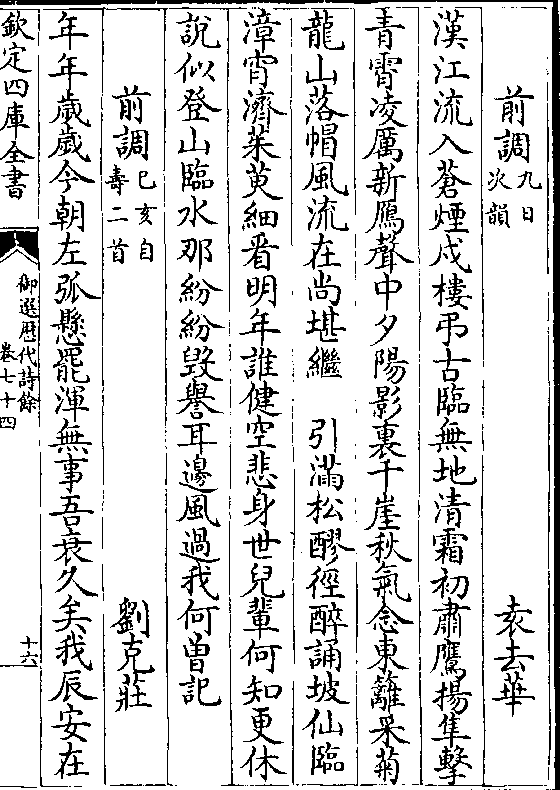 前調九日次韻 袁去華
漢江流入蒼煙戍樓弔古臨無地清霜初肅鷹揚隼擊
青霄凌厲新鴈聲中夕陽影裏千崖秋氣念東籬采菊
龍山落帽風流在尚堪繼 引滿松醪徑醉誦坡仙臨
漳宵濟茱萸細看明年誰健空悲身世兒輩何知更休
說似登山臨水那紛紛毀譽耳邊風過我何曽記
前調己亥自壽二首 劉克莊
年年歲歲今朝左弧懸罷渾無事吾衰久矣我辰安在
欽定四庫全書
御選歷代詩餘
卷七十四
十六